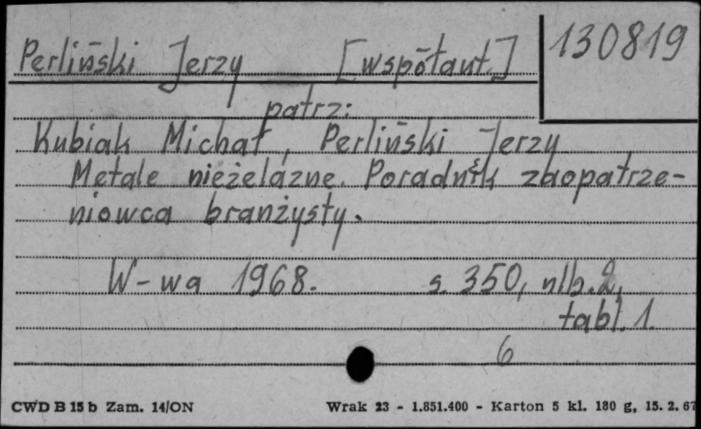 130819
Perliński Jerzy [współaut.]
patrz:
Kubiak Michał, Perliński Jerzy
Metale nieżelazne. Poradnik zaopatrze-
niowca branżysty.
W-wa 1968. s. 350, nlb. 2,
tabl. 1.
6
CWD B 15 b Zam. 14/ON Wrak 23 - 1.851.400 - Karton 5 kl. 180 g, 15. 2. 67